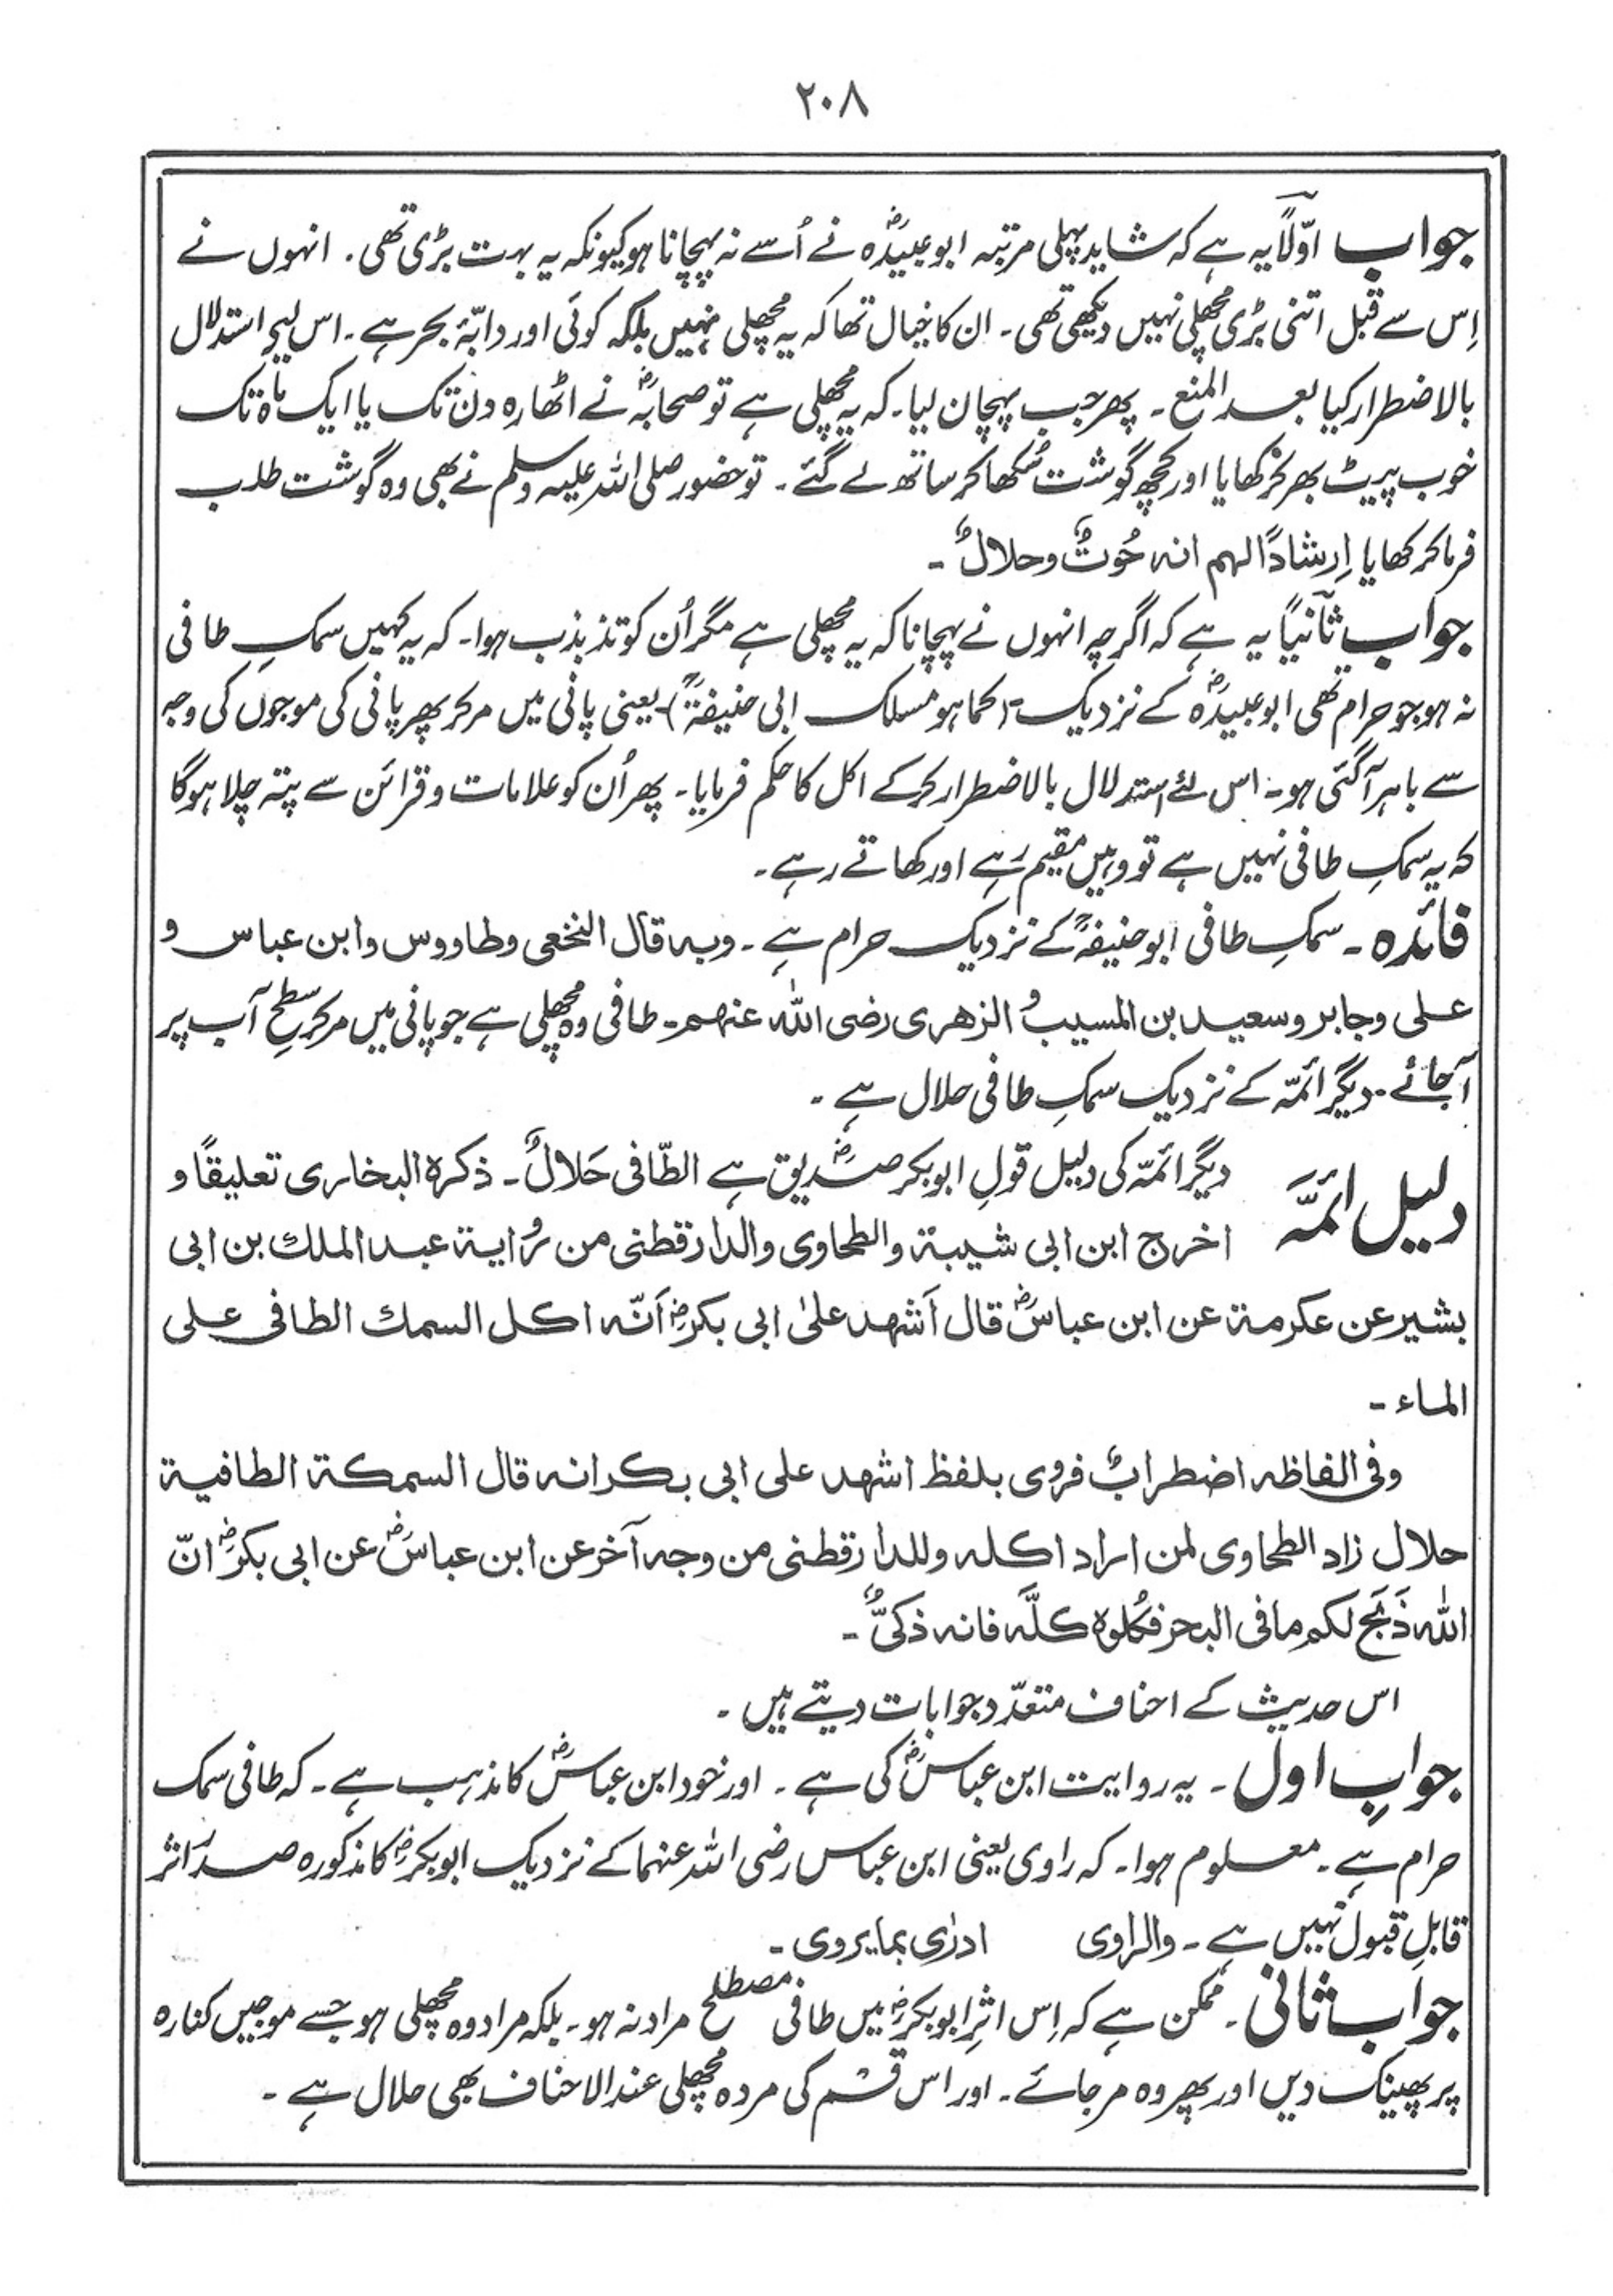 ۲۰۸
جواب اوّلاً یہ ہے کہ شاید پہلی مرتبہ ابوعبیدہؓ نے اُسے نہ پہچانا ہو کیونکہ یہ بہت بڑی تھی۔ انہوں نے
اِس سے قبل اتنی بڑی مچھلی نہیں دیکھی تھی۔ ان کا خیال تھا کہ یہ مچھلی نہیں بلکہ کوئی اور دابّۂ بحر ہے۔ اس لیے استدلال
بالاضطرار کیا بعد المنع۔ پھر جب پہچان لیا۔ کہ یہ مچھلی ہے تو صحابہؓ نے اٹھارہ دن تک یا ایک ماہ تک
خوب پیٹ بھر کر کھایا اور کچھ گوشت سُکھا کر ساتھ لے گئے۔ تو حضور صلی اللہ علیہ وسلم نے بھی وہ گوشت طلب
فرما کر کھایا اِرشادًا لہم انہ حُوتٌ وحلالٌ۔
جواب ثانیاً یہ ہے کہ اگرچہ انہوں نے پہچانا کہ یہ مچھلی ہے مگر اُن کو تذبذب ہوا۔ کہ یہ کہیں سمکِ طافی
نہ ہو جو حرام تھی ابوعبیدہؓ کے نزدیک (کما ہو مسلک ابی حنیفۃؒ) یعنی پانی میں مر کر پھر پانی کی موجوں کی وجہ
سے باہر آگئی ہو۔ اس لئے استدلال بالاضطرار کرکے اکل کا حکم فرمایا۔ پھر اُن کو علامات و قرائن سے پتہ چلا ہوگا
کہ یہ سمکِ طافی نہیں ہے تو وہیں مقیم رہے اور کھاتے رہے۔
فائدہ۔ سمکِ طافی ابوحنیفہؒ کے نزدیک حرام ہے۔ وبہ قال النخعی وطاووس وابن عباس و
علی وجابر وسعید بن المسیب والزھری رضی اللہ عنھم۔ طافی وہ مچھلی ہے جو پانی میں مر کر سطحِ آب پر
آجائے۔ دیگر ائمّہ کے نزدیک سمکِ طافی حلال ہے۔
دلیل ائمّہ دیگر ائمّہ کی دلیل قولِ ابوبکر صدّیقؓ ہے الطّافی حَلالٌ۔ ذکرہ البخاری تعلیقًا و
اخرج ابن ابی شیبۃ والطحاوی والدارقطنی من رُوایۃ عبد الملک بن ابی
بشیر عن عکرمۃ عن ابن عباسؓ قال اَشھد علیٰ ابی بکرؓ اَنّہ اکل السمك الطافی علی
الماء۔
وفی الفاظہ اضطرابٌ فروی بلفظ اشھد علی ابی بکر انہ قال السمکۃ الطافیۃ
حلال زاد الطحاوی لمن اراد اکلہ وللدارقطنی من وجہ آخر عن ابن عباسؓ عن ابی بکرؓ انّ
اللہ ذَبَحَ لکم ما فی البحر فکُلوہ کلَّہ فانہ ذکیٌّ۔
اس حدیث کے احناف متعدّد جوابات دیتے ہیں۔
جوابِ اول۔ یہ روایت ابن عباسؓ کی ہے۔ اور خود ابن عباسؓ کا مذہب ہے۔ کہ طافی سمک
حرام ہے۔ معلوم ہوا۔ کہ راوی یعنی ابن عباس رضی اللہ عنہما کے نزدیک ابوبکرؓ کا مذکورہ صدر اثر
قابلِ قبول نہیں ہے۔ والراوی ادرٰی بما یروی۔
جواب ثانی۔ ممکن ہے کہ اِس اثرِ ابوبکرؓ میں طافی مصطلح مراد نہ ہو۔ بلکہ مراد وہ مچھلی ہو جسے موجیں کنارہ
پر پھینک دیں اور پھر وہ مرجائے۔ اور اس قسم کی مردہ مچھلی عند الاحناف بھی حلال ہے۔